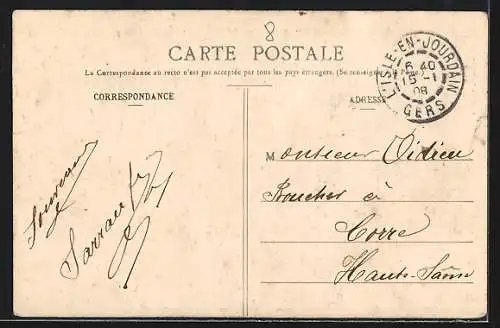 8
CARTE POSTALE
La Correspondance au recto n'est pas acceptée par tous les pays étrangers. (Se renseigner à la Poste)
CORRESPONDANCE
ADRESSE
L'ISLE-EN-JOURDAIN
6 40
15 -1
08
GERS
Monsieur Didieu
Boucher à
Corre
Haute-Saône
Souvenir